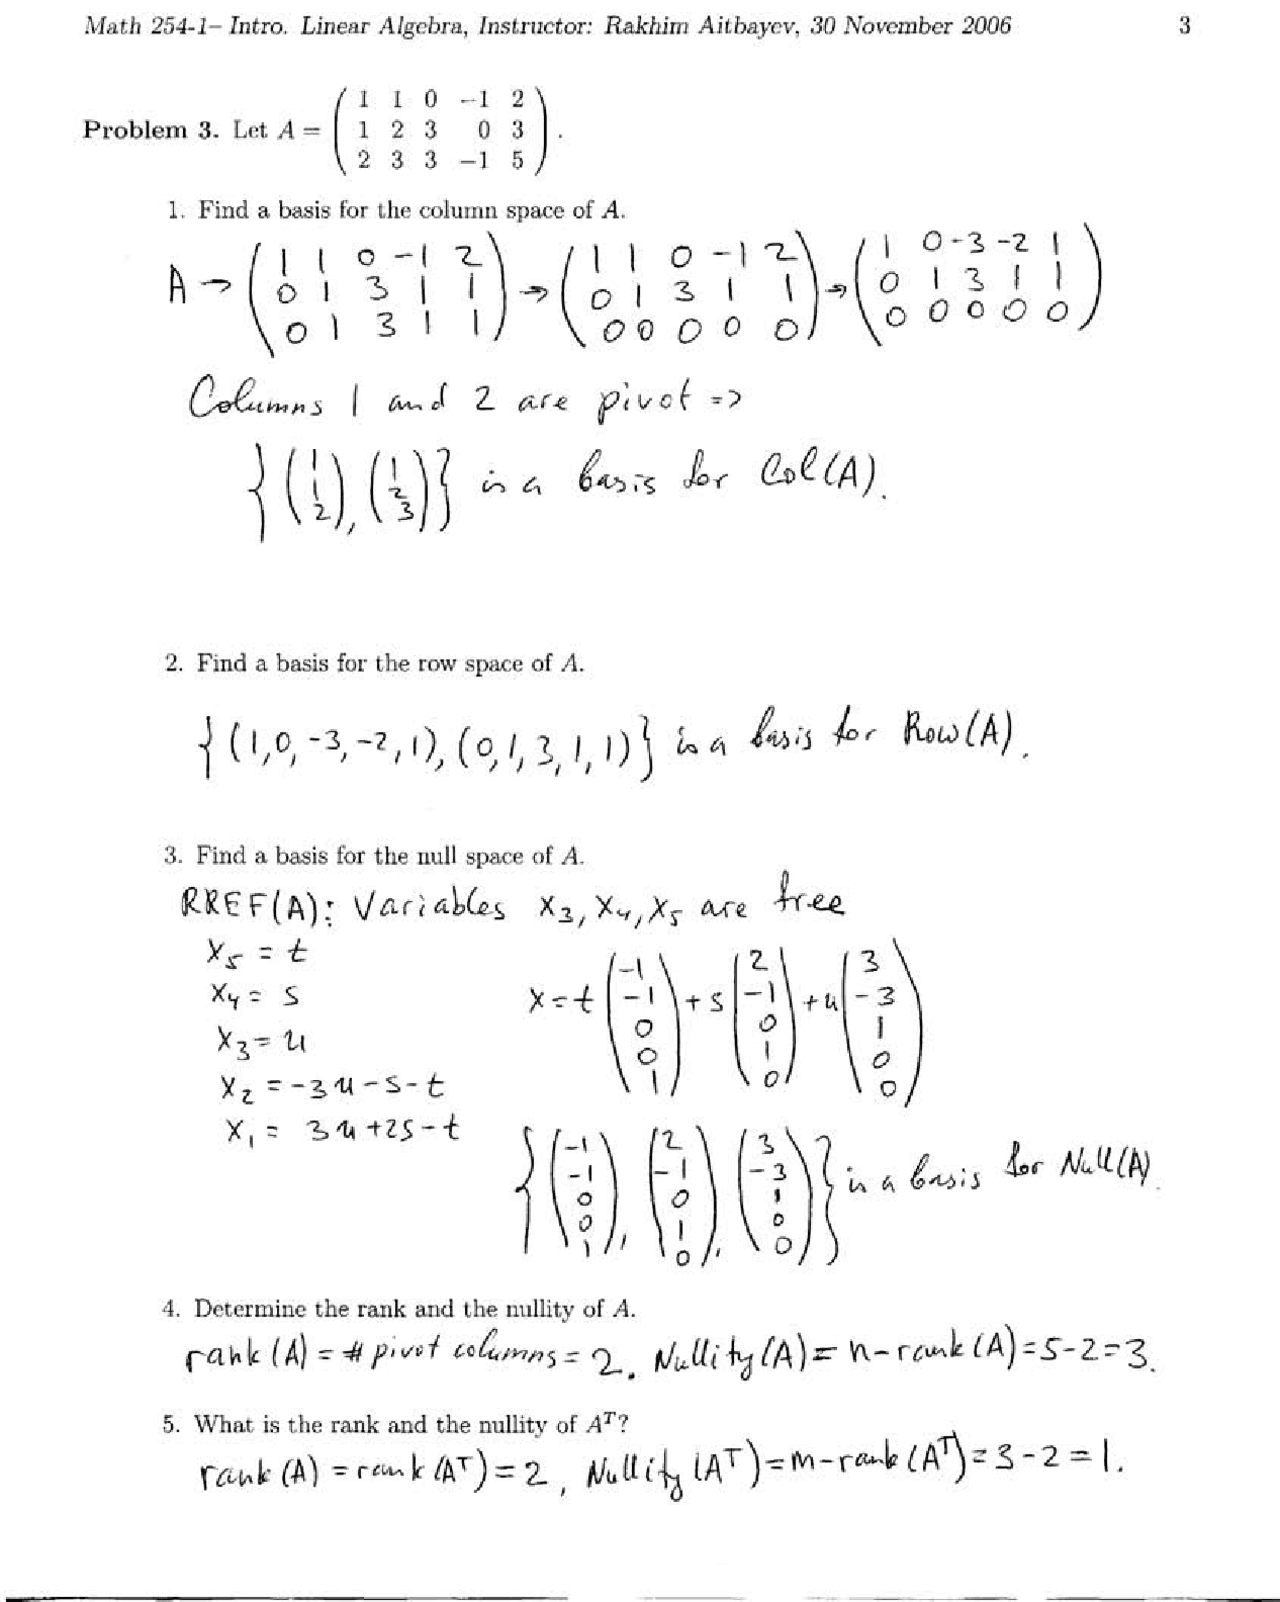 Math 254-1– Intro. Linear Algebra, Instructor: Rakhim Aitbayev, 30 November 2006 3
Problem 3. Let A = ( 1 1 0 −1 2
1 2 3 0 3
2 3 3 −1 5 ) .
1. Find a basis for the column space of A.
A → ( 1 1 0 -1 2 ) → ( 1 1 0 -1 2 ) → ( 1 0 -3 -2 1 )
( 0 1 3 1 1 ) ( 0 1 3 1 1 ) ( 0 1 3 1 1 )
( 0 1 3 1 1 ) ( 0 0 0 0 0 ) ( 0 0 0 0 0 )
Columns 1 and 2 are pivot =>
{ (1 1 2), (1 2 3) } is a basis for Col(A).
2. Find a basis for the row space of A.
{ (1,0,-3,-2,1), (0,1,3,1,1) } is a basis for Row(A).
3. Find a basis for the null space of A.
RREF(A): Variables x₃, x₄, x₅ are free
x₅ = t
x₄ = s
x₃ = u
x₂ = -3u-s-t
x₁ = 3u+2s-t
x = t (-1 -1 0 0 1) + s (2 -1 0 1 0) + u (3 -3 1 0 0)
{ (-1 -1 0 0 1), (2 -1 0 1 0), (3 -3 1 0 0) } is a basis for Null(A).
4. Determine the rank and the nullity of A.
rank(A) = # pivot columns = 2. Nullity(A) = n-rank(A) = 5-2=3.
5. What is the rank and the nullity of Aᵀ?
rank(A) = rank(Aᵀ) = 2, Nullity(Aᵀ) = m-rank(Aᵀ) = 3-2 = 1.